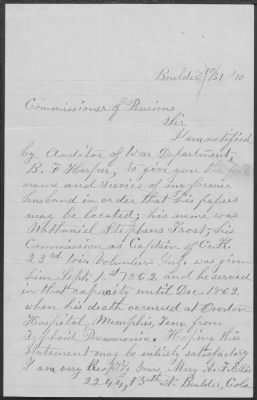 Boulder, 1/31 '10
Commissioner of Pensions
Sir
I am notified
by Auditor of War Department,
B. F. Harper, to give you the full
name and service of my former
husband in order that his papers
may be located; his name was
Nathaniel Stephens Frost; his
Commission as Captain of Co. K.
23rd Wis Volunteers Inf. was given
him Sept. 1st 1862 and he served
in that capacity until Dec. 1862
when his death occurred at Overton
Hospital, Memphis, Tenn from
Typhoid Pneumonia. Hoping this
statement may be entirely satisfactory
I am very Resp'ly Yours, Mary A. F. Ellis
2244, 13th St. Boulder, Colo.